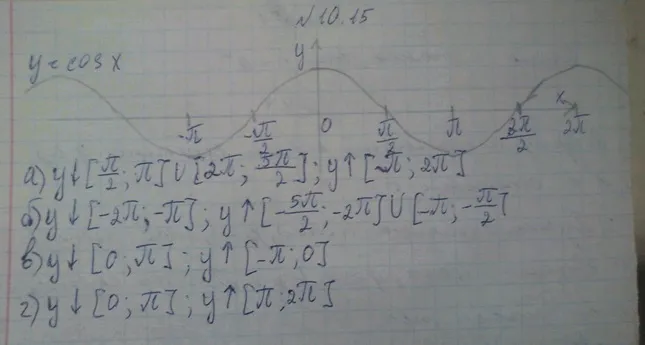 №10.15
y = cos x
y
-π -π/2 0 π/2 π 3π/2 x 2π
а) y↓[π/2; π]∪[2π; 5π/2]; y↑[π; 2π]
б) y↓[-2π; -π]; y↑[-5π/2; -2π]∪[-π; -π/2]
в) y↓[0; π]; y↑[-π; 0]
г) y↓[0; π]; y↑[π; 2π]